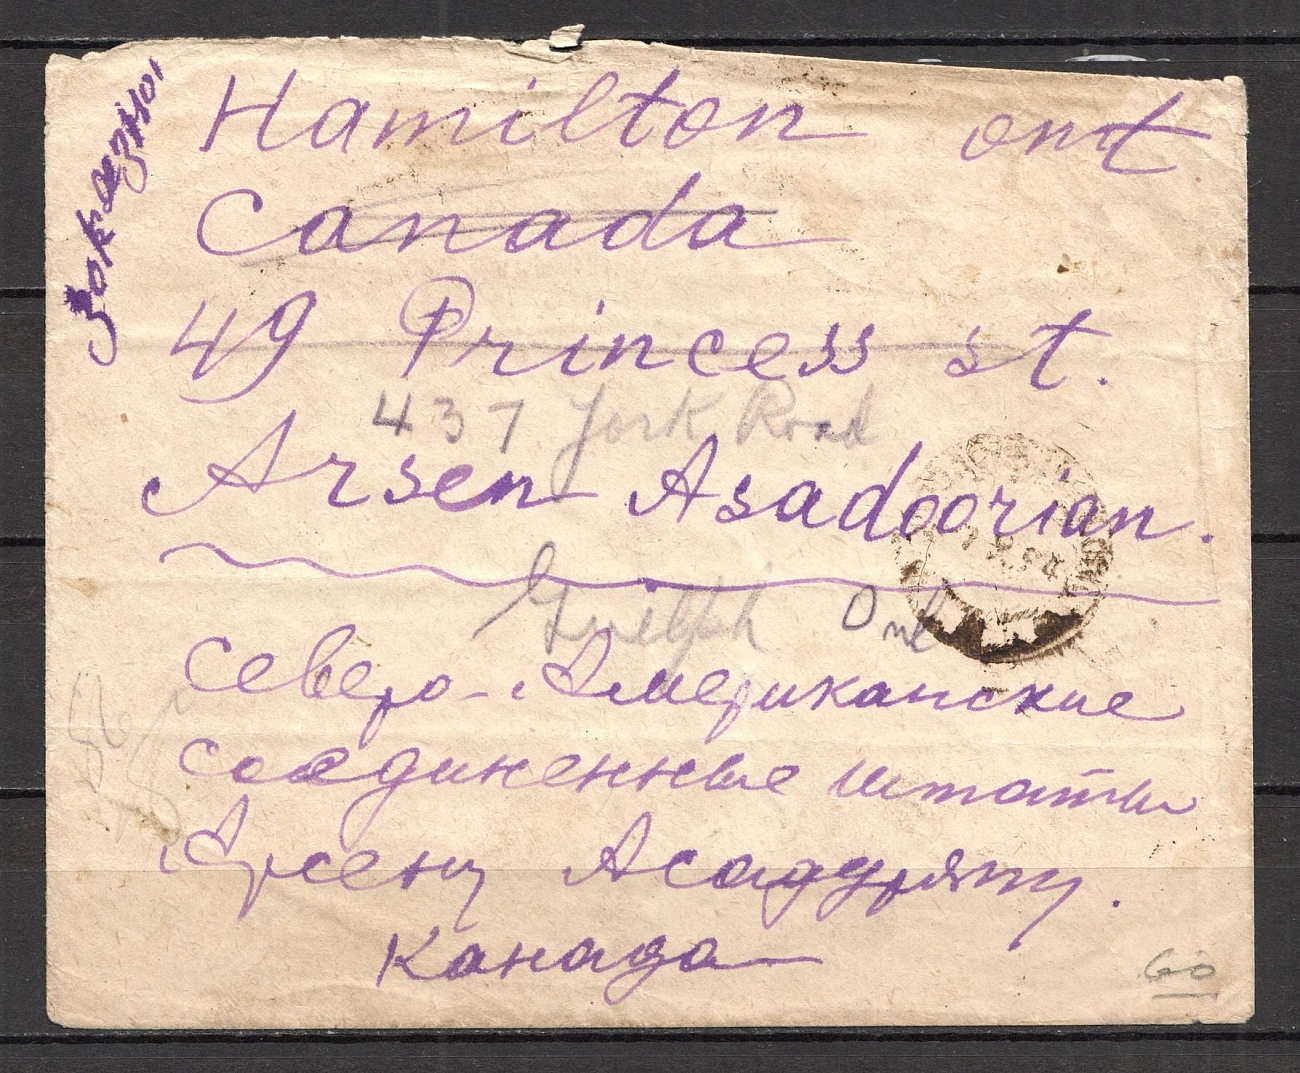 заказной
Hamilton ont
Canada
49 Princess st.
437 York Road
Arsen Asadoorian.
Guelph Ont
Северо-Американские
соединенные штаты
Арсену Асадуряну.
Канада
60